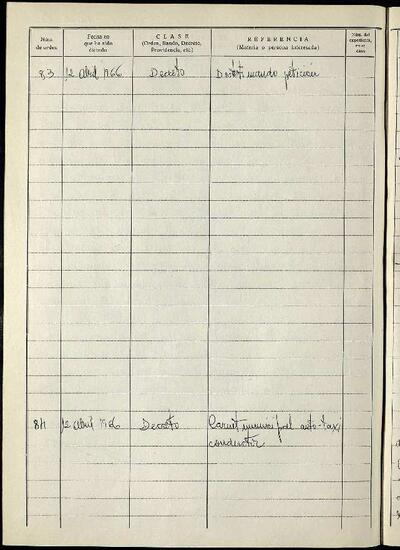 Núm. de orden
Fecha en que ha sido dictado
CLASE
(Orden, Bando, Decreto, Providencia, etc.)
REFERENCIA
(Materia o persona interesada)
Núm. del expediente, en su caso
83 12 Abril 1966 Decreto Desestimando petición
84 12 Abril 1966 Decreto Carnet municipal auto-taxi
conductor